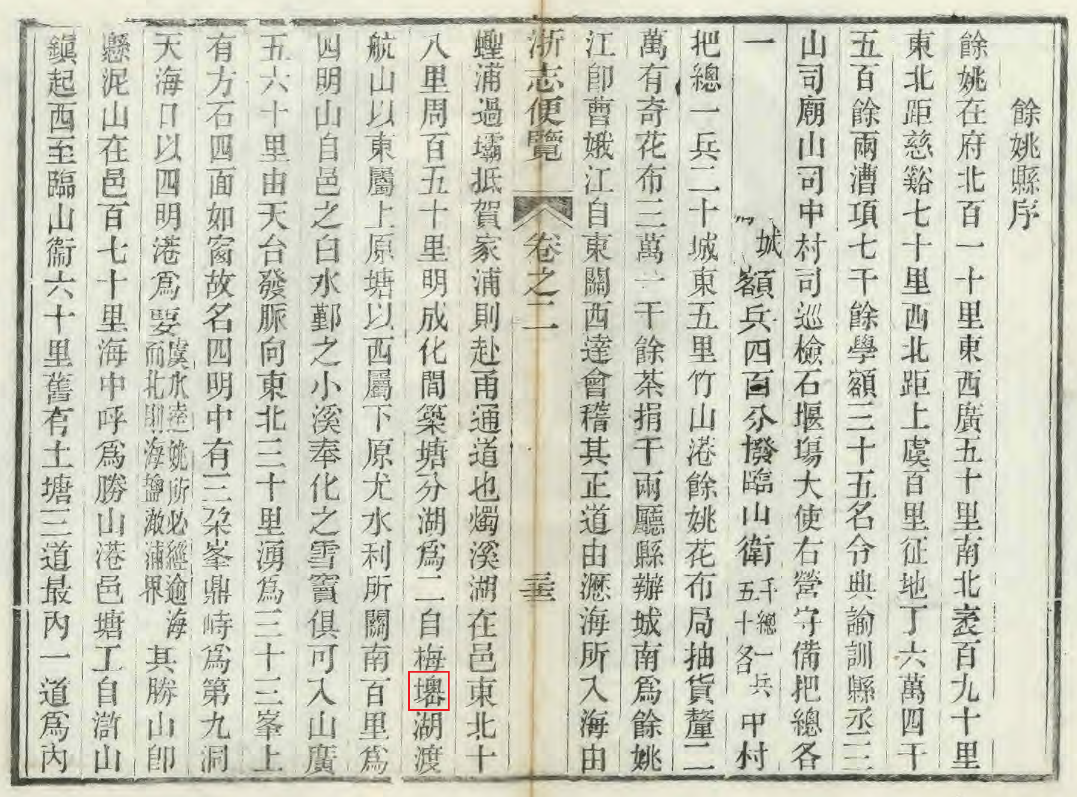 餘姚縣序
餘姚在府北百一十里東西廣五十里南北袤百九十里
東北距慈谿七十里西北距上虞百里征地丁六萬四千
五百餘兩漕項七千餘學額二十五名令典諭訓縣丞三
山司廟山司中村司巡檢石堰塲大使右營守備把總各
一 城額兵四百分撥臨山衛千總一兵五十各中村
把總一兵二十城東五里竹山港餘姚花布局抽貨釐二
萬有奇花布三萬一千餘茶捐千兩廳縣辦城南爲餘姚
江卽曹娥江自東關西達會稽其正道由瀝海所入海由
浙志便覽 卷之二 三十三
蟶浦過壩抵賀家浦則赴甬通道也燭溪湖在邑東北十
八里周百五十里明成化間築塘分湖爲二自梅墺湖渡
航山以東屬上原塘以西屬下原尤水利所關南百里爲
四明山自邑之白水鄞之小溪奉化之雪竇俱可入山廣
五六十里由天台發脈向東北三十里湧爲三十三峯上
有方石四面如窗故名四明中有三朶峯鼎峙爲第九洞
天海口以四明港爲要虞水達姚所必經逾海而北則海鹽澉浦界其勝山卽
懸泥山在邑百七十里海中呼爲勝山港邑塘工自滸山
鎭起西至臨山衞六十里舊有土塘三道最內一道爲內